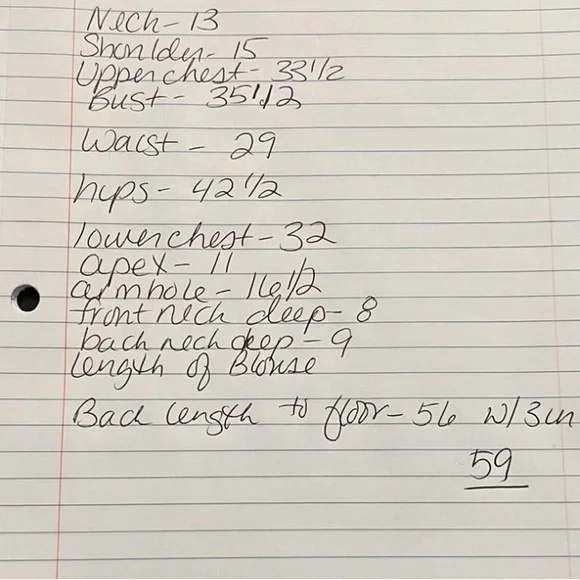 Neck - 13
Shoulder - 15
Upper chest - 33 1/2
Bust - 35 1/2
Waist - 29
hips - 42 1/2
lower chest - 32
apex - 11
armhole - 16 1/2
front neck deep - 8
back neck deep - 9
length of Blouse
Back length to floor - 56 w/3in
59